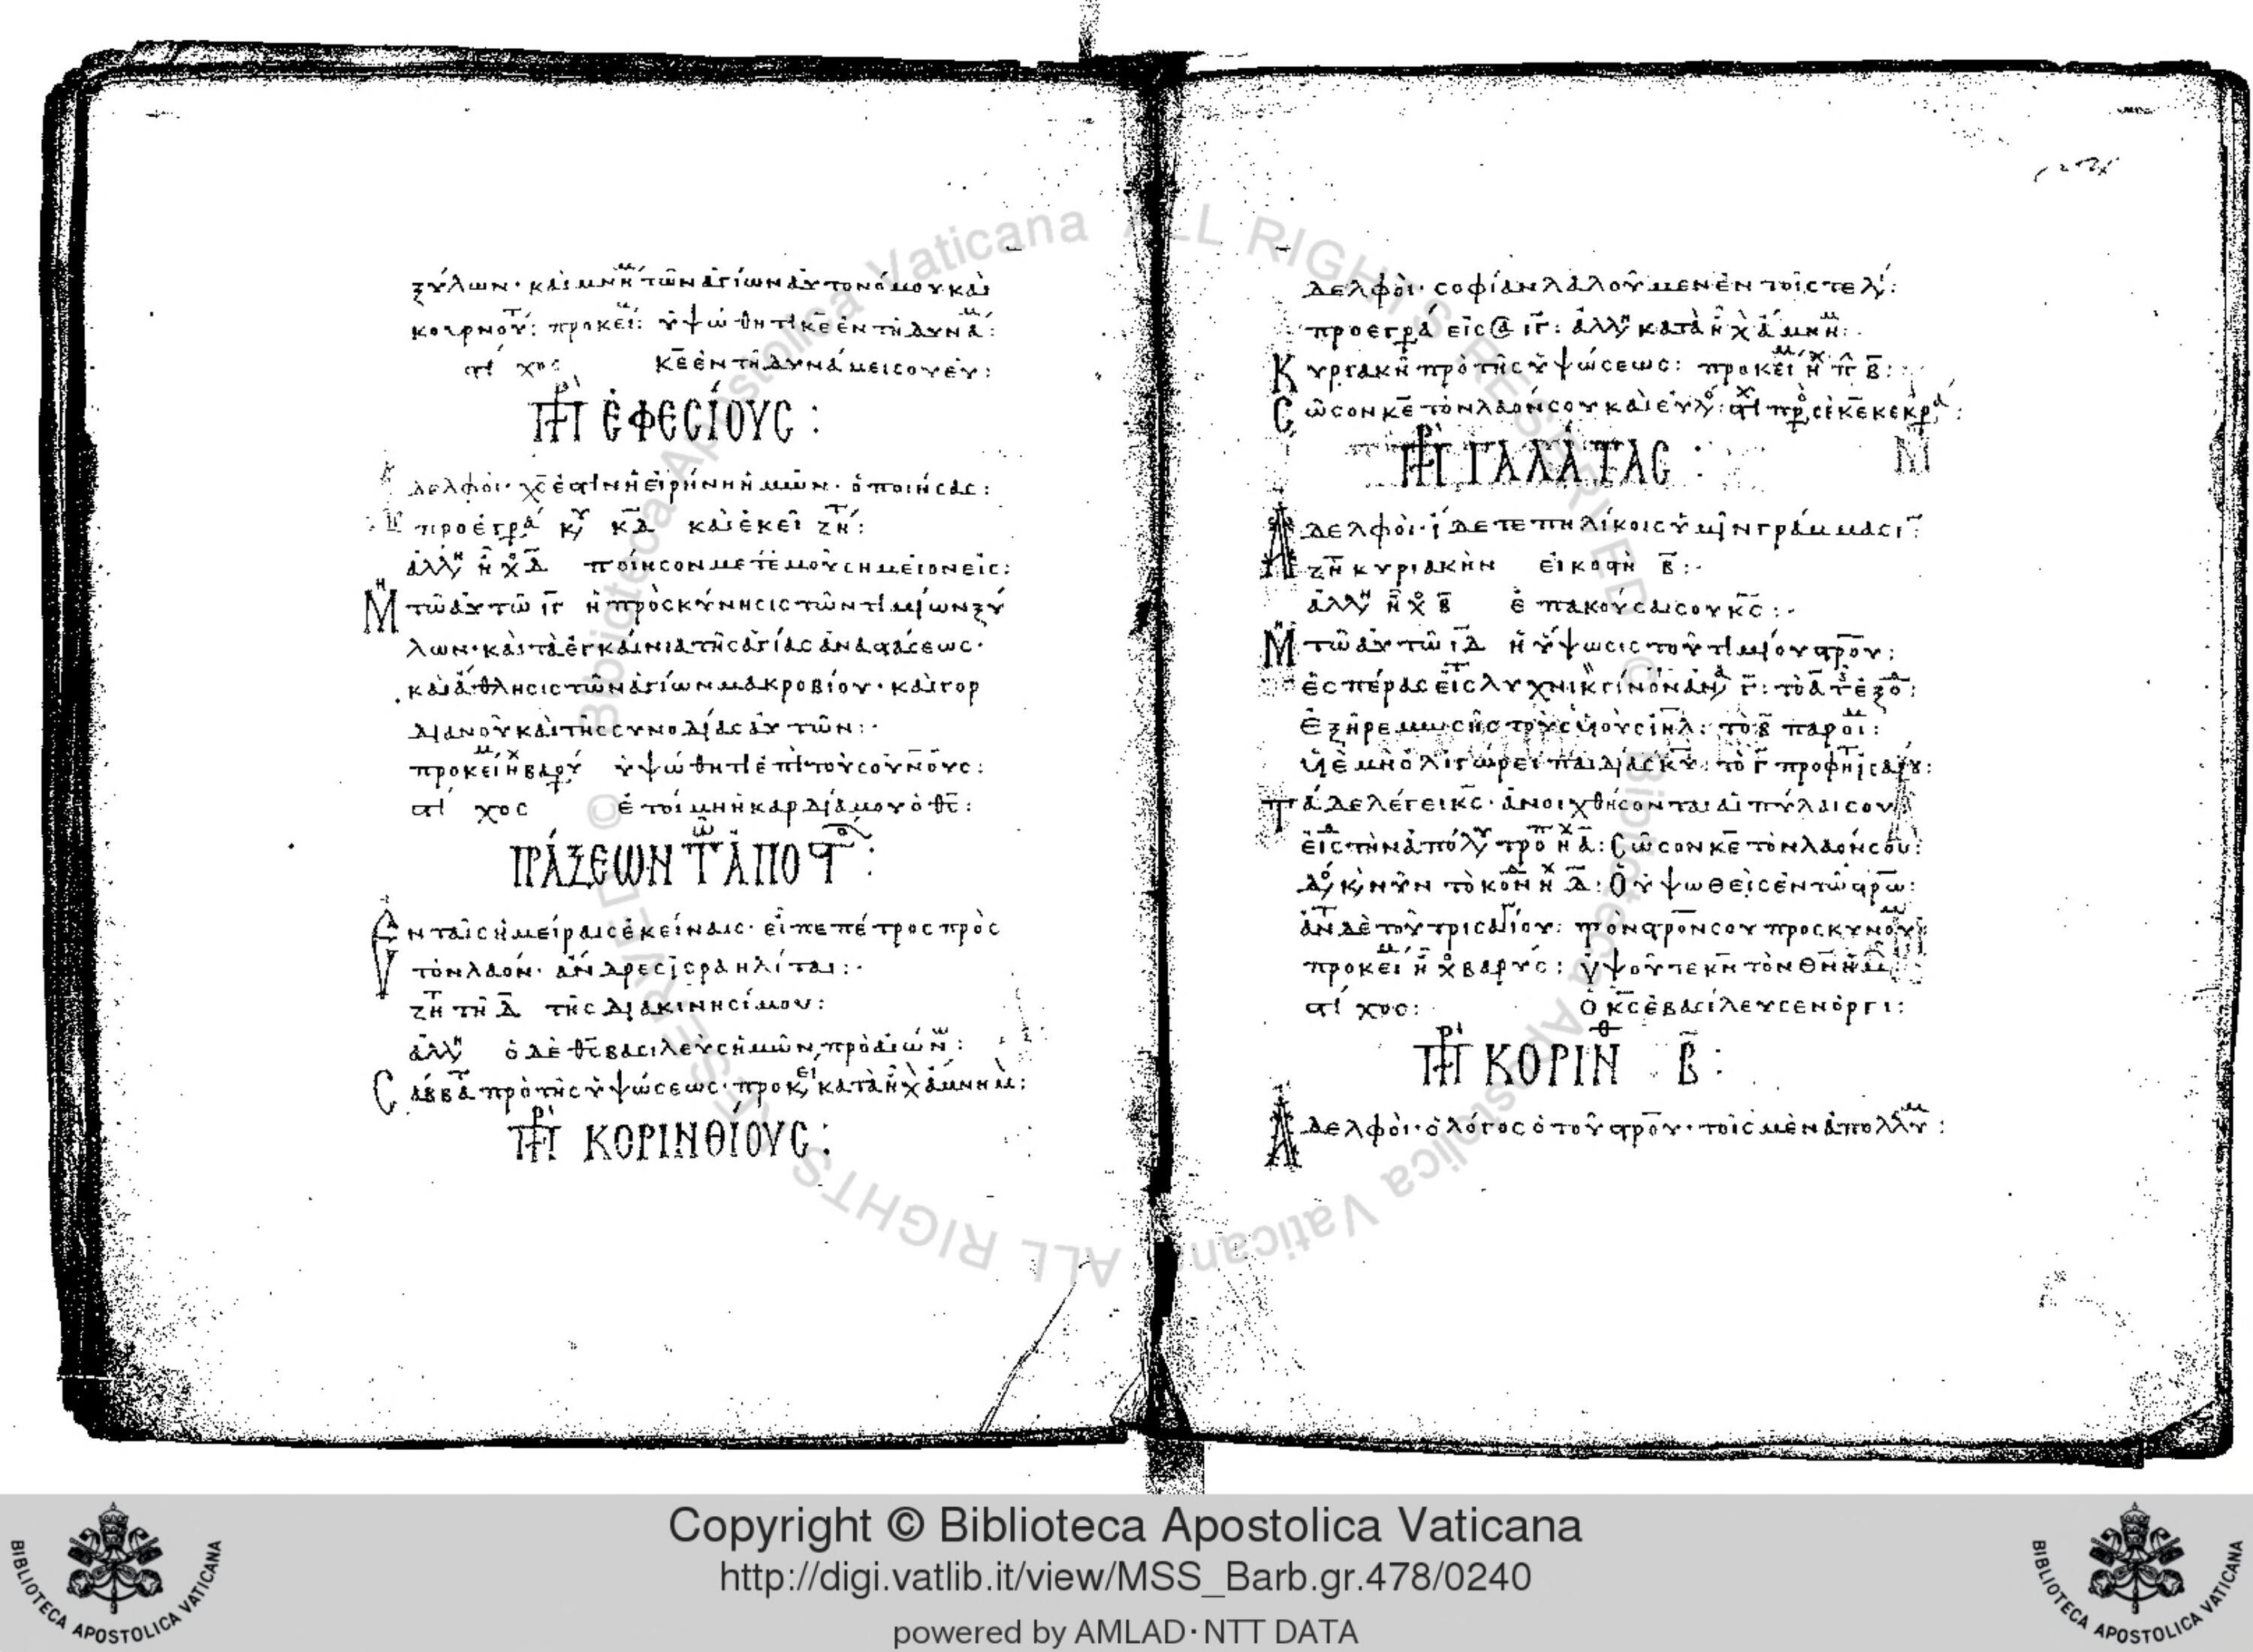 ξύλων· καὶ μνή τῶν ἁγίων ἀυτονόμου καὶ
κουρνού: προκεί: ὑψώθητι κε ἐν τῆ δυνά:
στί χος κε ἐν τῆ δυνάμει σου ἐυ:
πρ ἐφεσίους:
δελφοι· χς ἐστὶν ἡ ἐιρήνη ἡμῶν· ὁ ποιήσας:
προέγρα κυ κδ καὶ ἐκεῖ ζή:
ἀλλη ἦχ δ ποίησον μετ ἐμοῦ σημεῖον εἰς:
Μη τῶ ἀυτῶ ιγ ἡ πρὸσκύνησις τῶν τιμίων ξύ
λων· καὶ τὰ ἐγκαίνια τῆς ἁγίας ἀναστάσεως·
καὶ ἄθλησις τῶν ἁγίων μακροβίου· καὶ γορ
διανοῦ καὶ τῆς συνοδίας ἀυτῶν:·
προκεί ἦχ βαρύ ὑψώθητι ἐπὶ τοὺς οὐνους:
στί χος ἑτοίμη ἡ καρδία μου ὁ θς:
πράξεων τῶν ἀποστ:
Εν ταῖς ἡμείραις ἐκείναις· εἶπε πέτρος πρὸς
τὸν λαόν· ἄνδρες ἰσραηλίται:·
ζητ τῆ δ τῆς διακινησίμου:
ἀλλη ὁ δὲ θς βασιλεὺς ἡμῶν πρὸ αἰών:
Σάββα πρὸ τῆς ὑψώσεως· προκει κατὰ ἦχ ἀμνημ:
πρ κορινθίους:
δελφοὶ· σοφίαν λαλοῦμεν ἐν τοῖς τελ:
προεγρα εἰς ιγ: ἀλλη κατὰ ἦχ ἀμνημ:
Κυριακῆ πρὸ τῆς ὑψώσεως: προκει ἦχ πλ β:
Σῶσον κε τὸν λαόν σου καὶ ἐυλ: στι πρός σὲ κε κεκρα:
πρ γαλάτας:
Αδελφοὶ· ἴδετε πηλίκοις ὑμῖν γράμμασι
ζητ κυριακὴν εἰκοστὴ β:·
ἀλλη ἦχ β ἐπακούσαι σου κς:·
Μη τῶ ἀυτῶ ιδ ἡ ὕψωσις τοῦ τιμίου στρου:
ἑσπέρας εἰς λυχνικ γίνον ἀνα γ: τὸ α τ ἐξο:
ἐξῆρε μωσῆς τοὺς υἱοὺς ιηλ: τὸ β παροιμ:
υἱὲ μὴ ὀλιγώρει παιδίας κυ: τὸ γ προφητ ησαΐου:
τάδε λέγει κς· ἀνοιχθήσονται αἱ πύλαι σου
εἰς τὴν ἀπόλυ τρο ἦχ α: Σῶσον κε τὸν λαόν σου:
δο κ νῦν τὸ κον ἦχ δ: Ὁ ὑψωθεὶς ἐν τῶ στρω:
ἀντ δὲ τοῦ τρισαγίου: τὸν στρον σου προσκυνουμ
προκει ἦχ βαρύς: ὑψοῦτε κν τὸν θν ἡμ:
στί χος: ὁ κς ἐβασίλευσεν ὀργι:
πρ κορινθ β:
Αδελφοὶ· ὁ λόγος ὁ τοῦ στρου· τοῖς μὲν ἀπολλυμ:
Copyright © Biblioteca Apostolica Vaticana
http://digi.vatlib.it/view/MSS_Barb.gr.478/0240
powered by AMLAD·NTT DATA
BIBLIOTECA APOSTOLICA VATICANA
BIBLIOTECA APOSTOLICA VATICANA